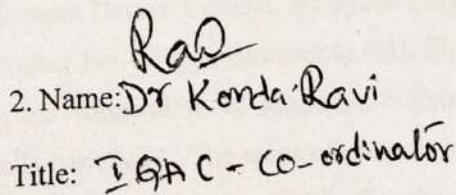 2. Name: Dr Konda Ravi
Title: IQAC - Co-ordinator